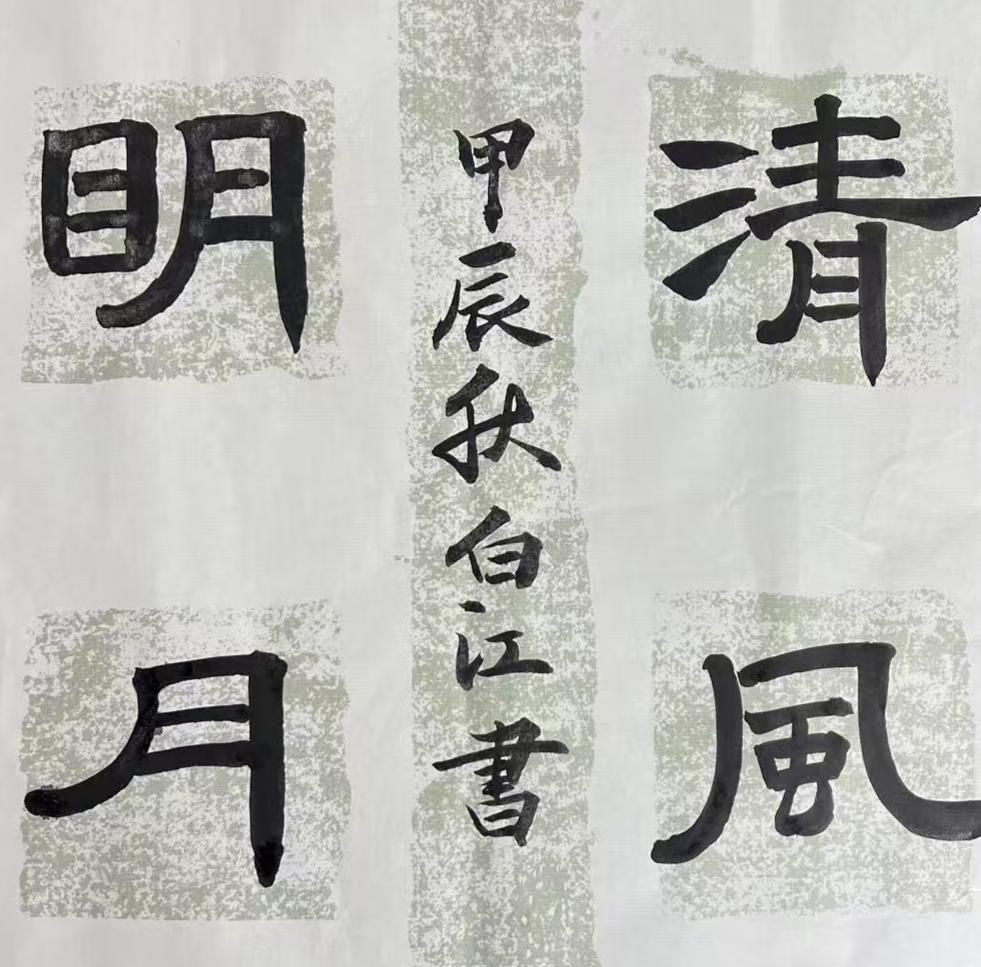 清風
甲辰秋白江書
明月